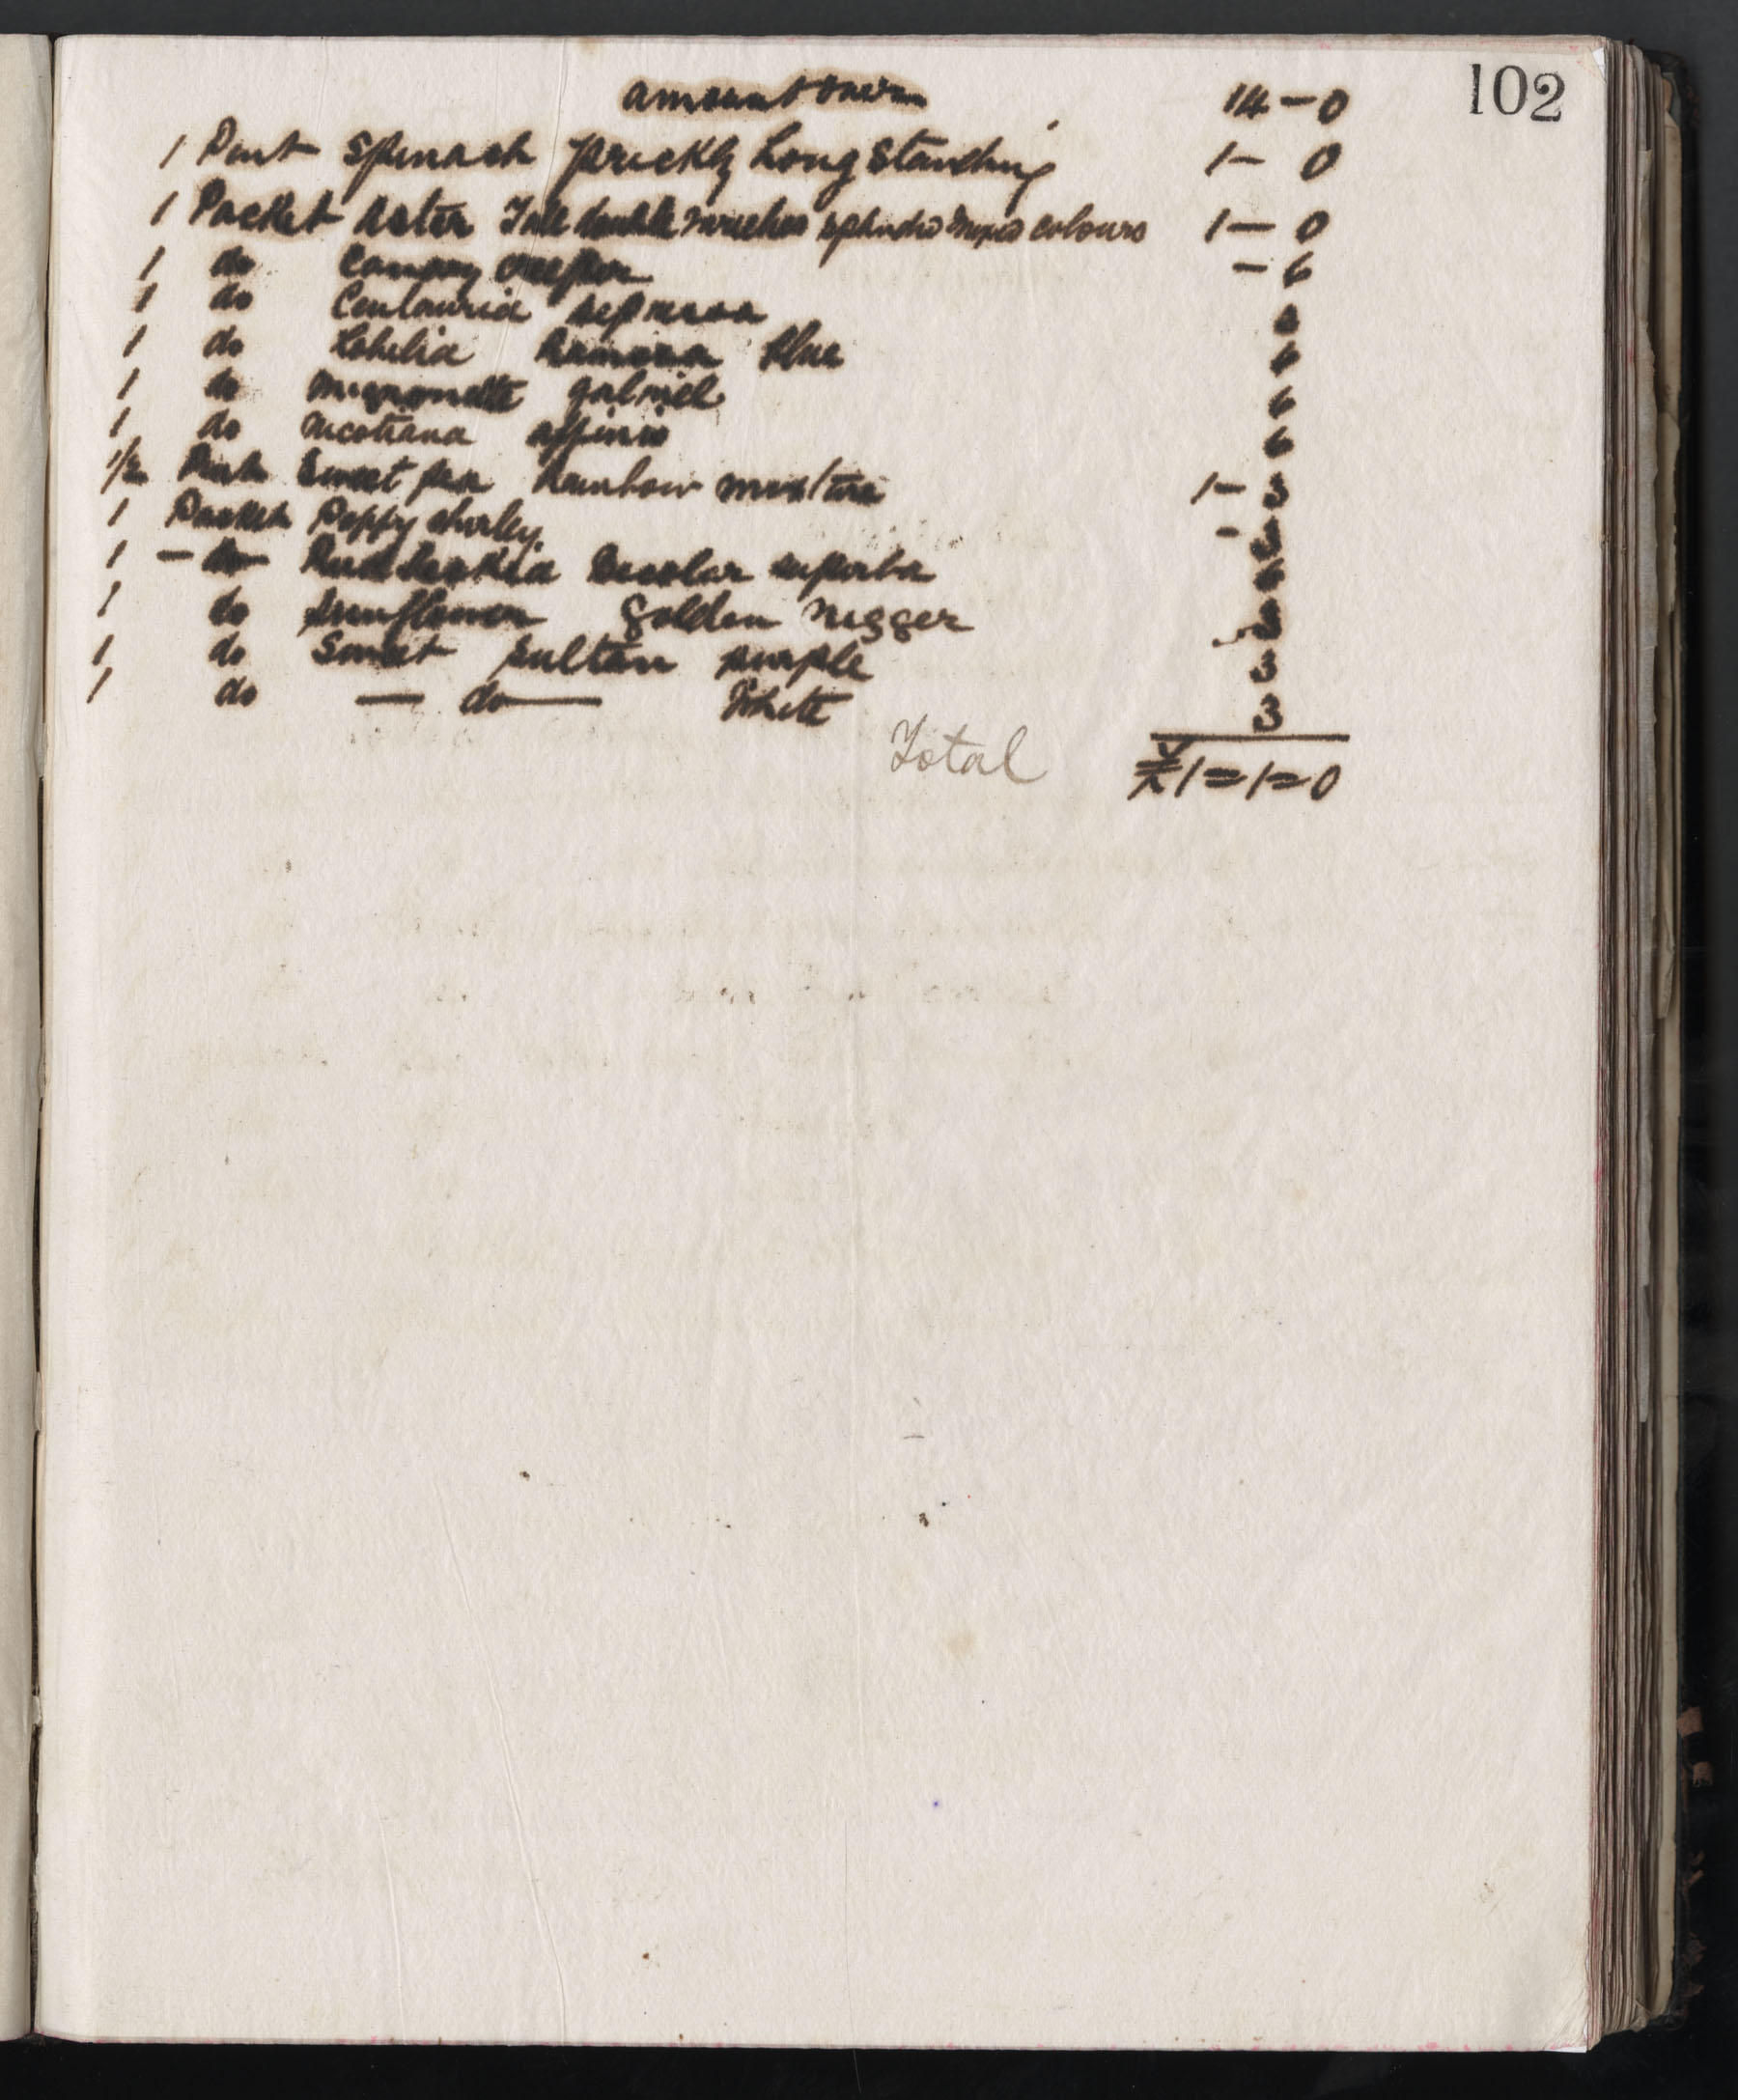 102
amount over 14 - 0
1 Pint Spinach prickly Long Standing 1 - 0
1 Packet Aster Tall double mixed colours 1 - 0
1 do Canary creeper - 6
1 do Centauria 6
1 do Lobelia Ramosa blue 6
1 do Mignonette gabriel 6
1 do Nicotiana affinis 6
1/2 Pint Sweet pea Rainbow mixture 1 - 3
1 Packet Poppy shirley - 3
1 - do - Rudbeckia Bicolar superba 6
1 do Sunflower Golden nigger 3
1 do Sweet Sultan purple 3
1 do - do - White 3
Total £1=1=0